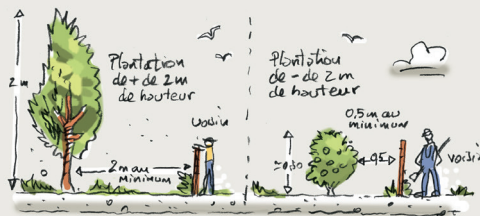 2m
Plantation
de + de 2m
de hauteur
voisin
2m au
minimum
Plantation
de - de 2m
de hauteur
0,5m au
minimum
0,5
voisin